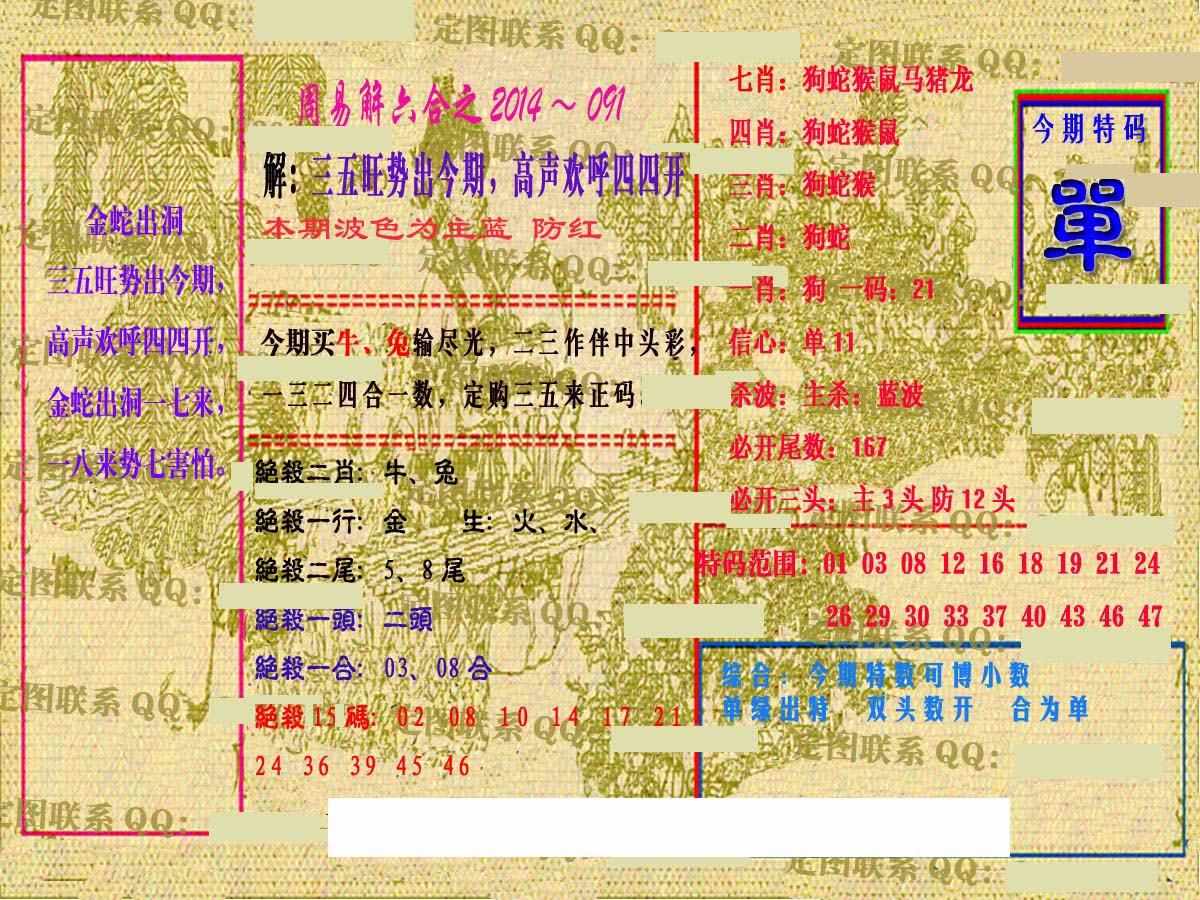 周易解六合之2014～091
金蛇出洞
三五旺势出今期，
高声欢呼四四开，
金蛇出洞一七来，
一八来势七害怕。
解：三五旺势出今期，高声欢呼四四开
本期波色为主蓝 防红
今期买牛、兔输尽光，二三作伴中头彩，
一三二四合一数，定购三五来正码
絕殺二肖：牛、兔
絕殺一行：金 生：火、水、
絕殺二尾：5、8尾
絕殺一頭：二頭
絕殺一合：03、08合
絕殺15碼：02 08 10 14 17 21
24 36 39 45 46
七肖：狗蛇猴鼠马猪龙
四肖：狗蛇猴鼠
三肖：狗蛇猴
二肖：狗蛇
一肖：狗 一码：21
信心：单11
杀波：主杀：蓝波
必开尾数：167
必开三头：主3头防12头
特码范围：01 03 08 12 16 18 19 21 24
26 29 30 33 37 40 43 46 47
今期特码
單
综合：今期特数可博小数
单绿出特 双头数开 合为单
定图联系QQ：